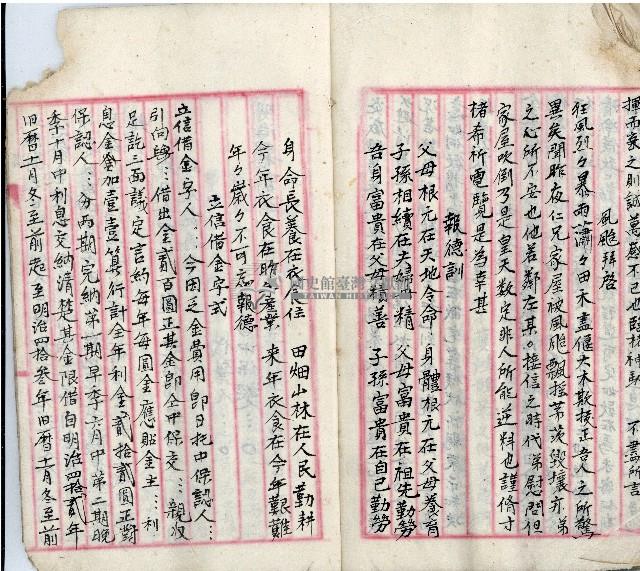 揮而家之則誠萬感不已也臨楮神馳 不盡所言
風颱拜啓
狂風烈々暴雨瀟々田禾盡偃大木斯拔正吾人之所驚
異矣聞昨夜仁兄家屋被風颱飄搖茅茨毀壞亦弟
之心所不安也他若鄰左某々接信之時代弟慰問但
家屋吹倒乃是皇天数定非人所能逆料也謹脩寸
楮希祈電覽是為幸甚
報德訓
父母根元在天地令命 身體根元在父母養育
子孫相續在夫婦丹精 父母富貴在祖先勤勞
吾身富貴在父母積善 子孫富貴在自己勤勞
身命長養在衣食住 田畑山林在人民勤耕
今年衣食在昨年産業 来年衣食在今年艱難
年々歳々不可忘報德
立信借金字式
立信借金字人… 今因乏金費用即日托中保認人…
引向… 借出金貳百圓正其金即仝中保交… 親汉
足訖三面議定言約每年每圓金應貼金主… 利
息金加壹壹算行計全年利金貳拾貳圓正對
保認人… 分兩期完納第一期早季六月中第二期晚
季十月中利息交納清楚其金限借自明治四拾貳年
旧曆十一月冬至前起至明治四拾叁年旧曆十一月冬至前
國史館臺灣文獻館
TAIWAN HISTORICA